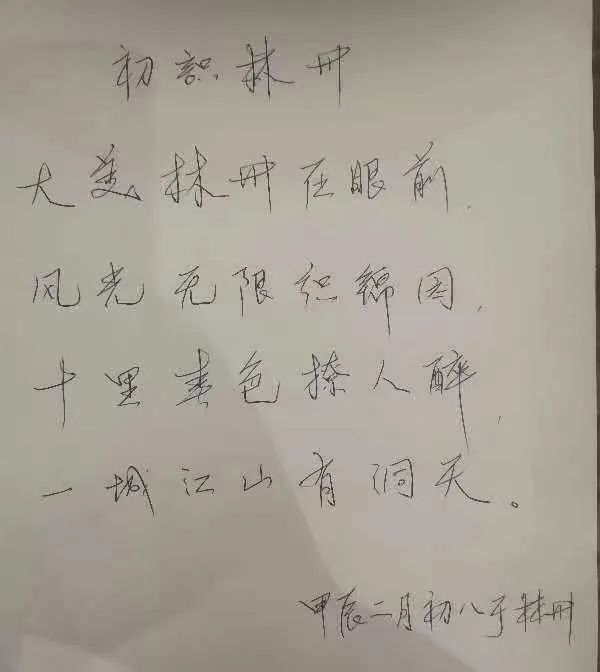 初识林州
大美林州在眼前，
风光无限织锦图，
十里春色撩人醉，
一城江山有洞天。
甲辰二月初八于林州